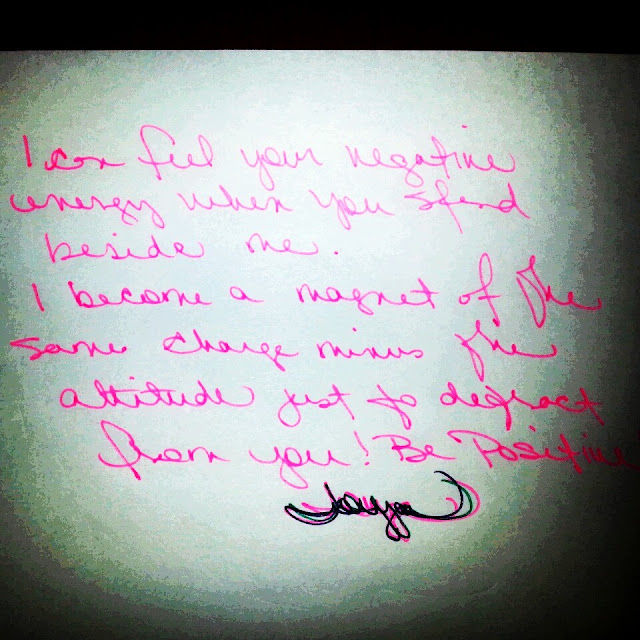 I can feel your negative
energy when you stand
beside me.
I become a magnet of the
same charge minus the
attitude just to
from you! Be Positive